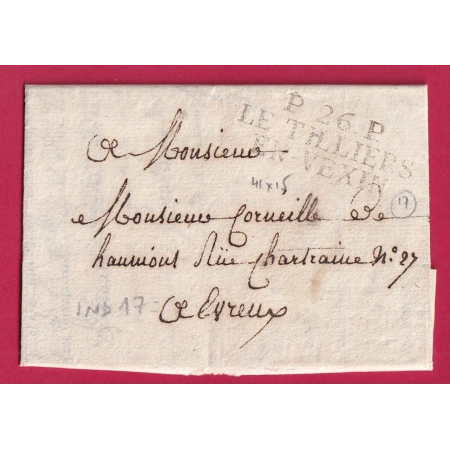 P 26 P
LE TILLIERS
EN VEXIN
A Monsieur
41 x 15
17
Monsieur Corneille de
haumont Rüe Chartraine N.° 27
IND 17
A Evreux